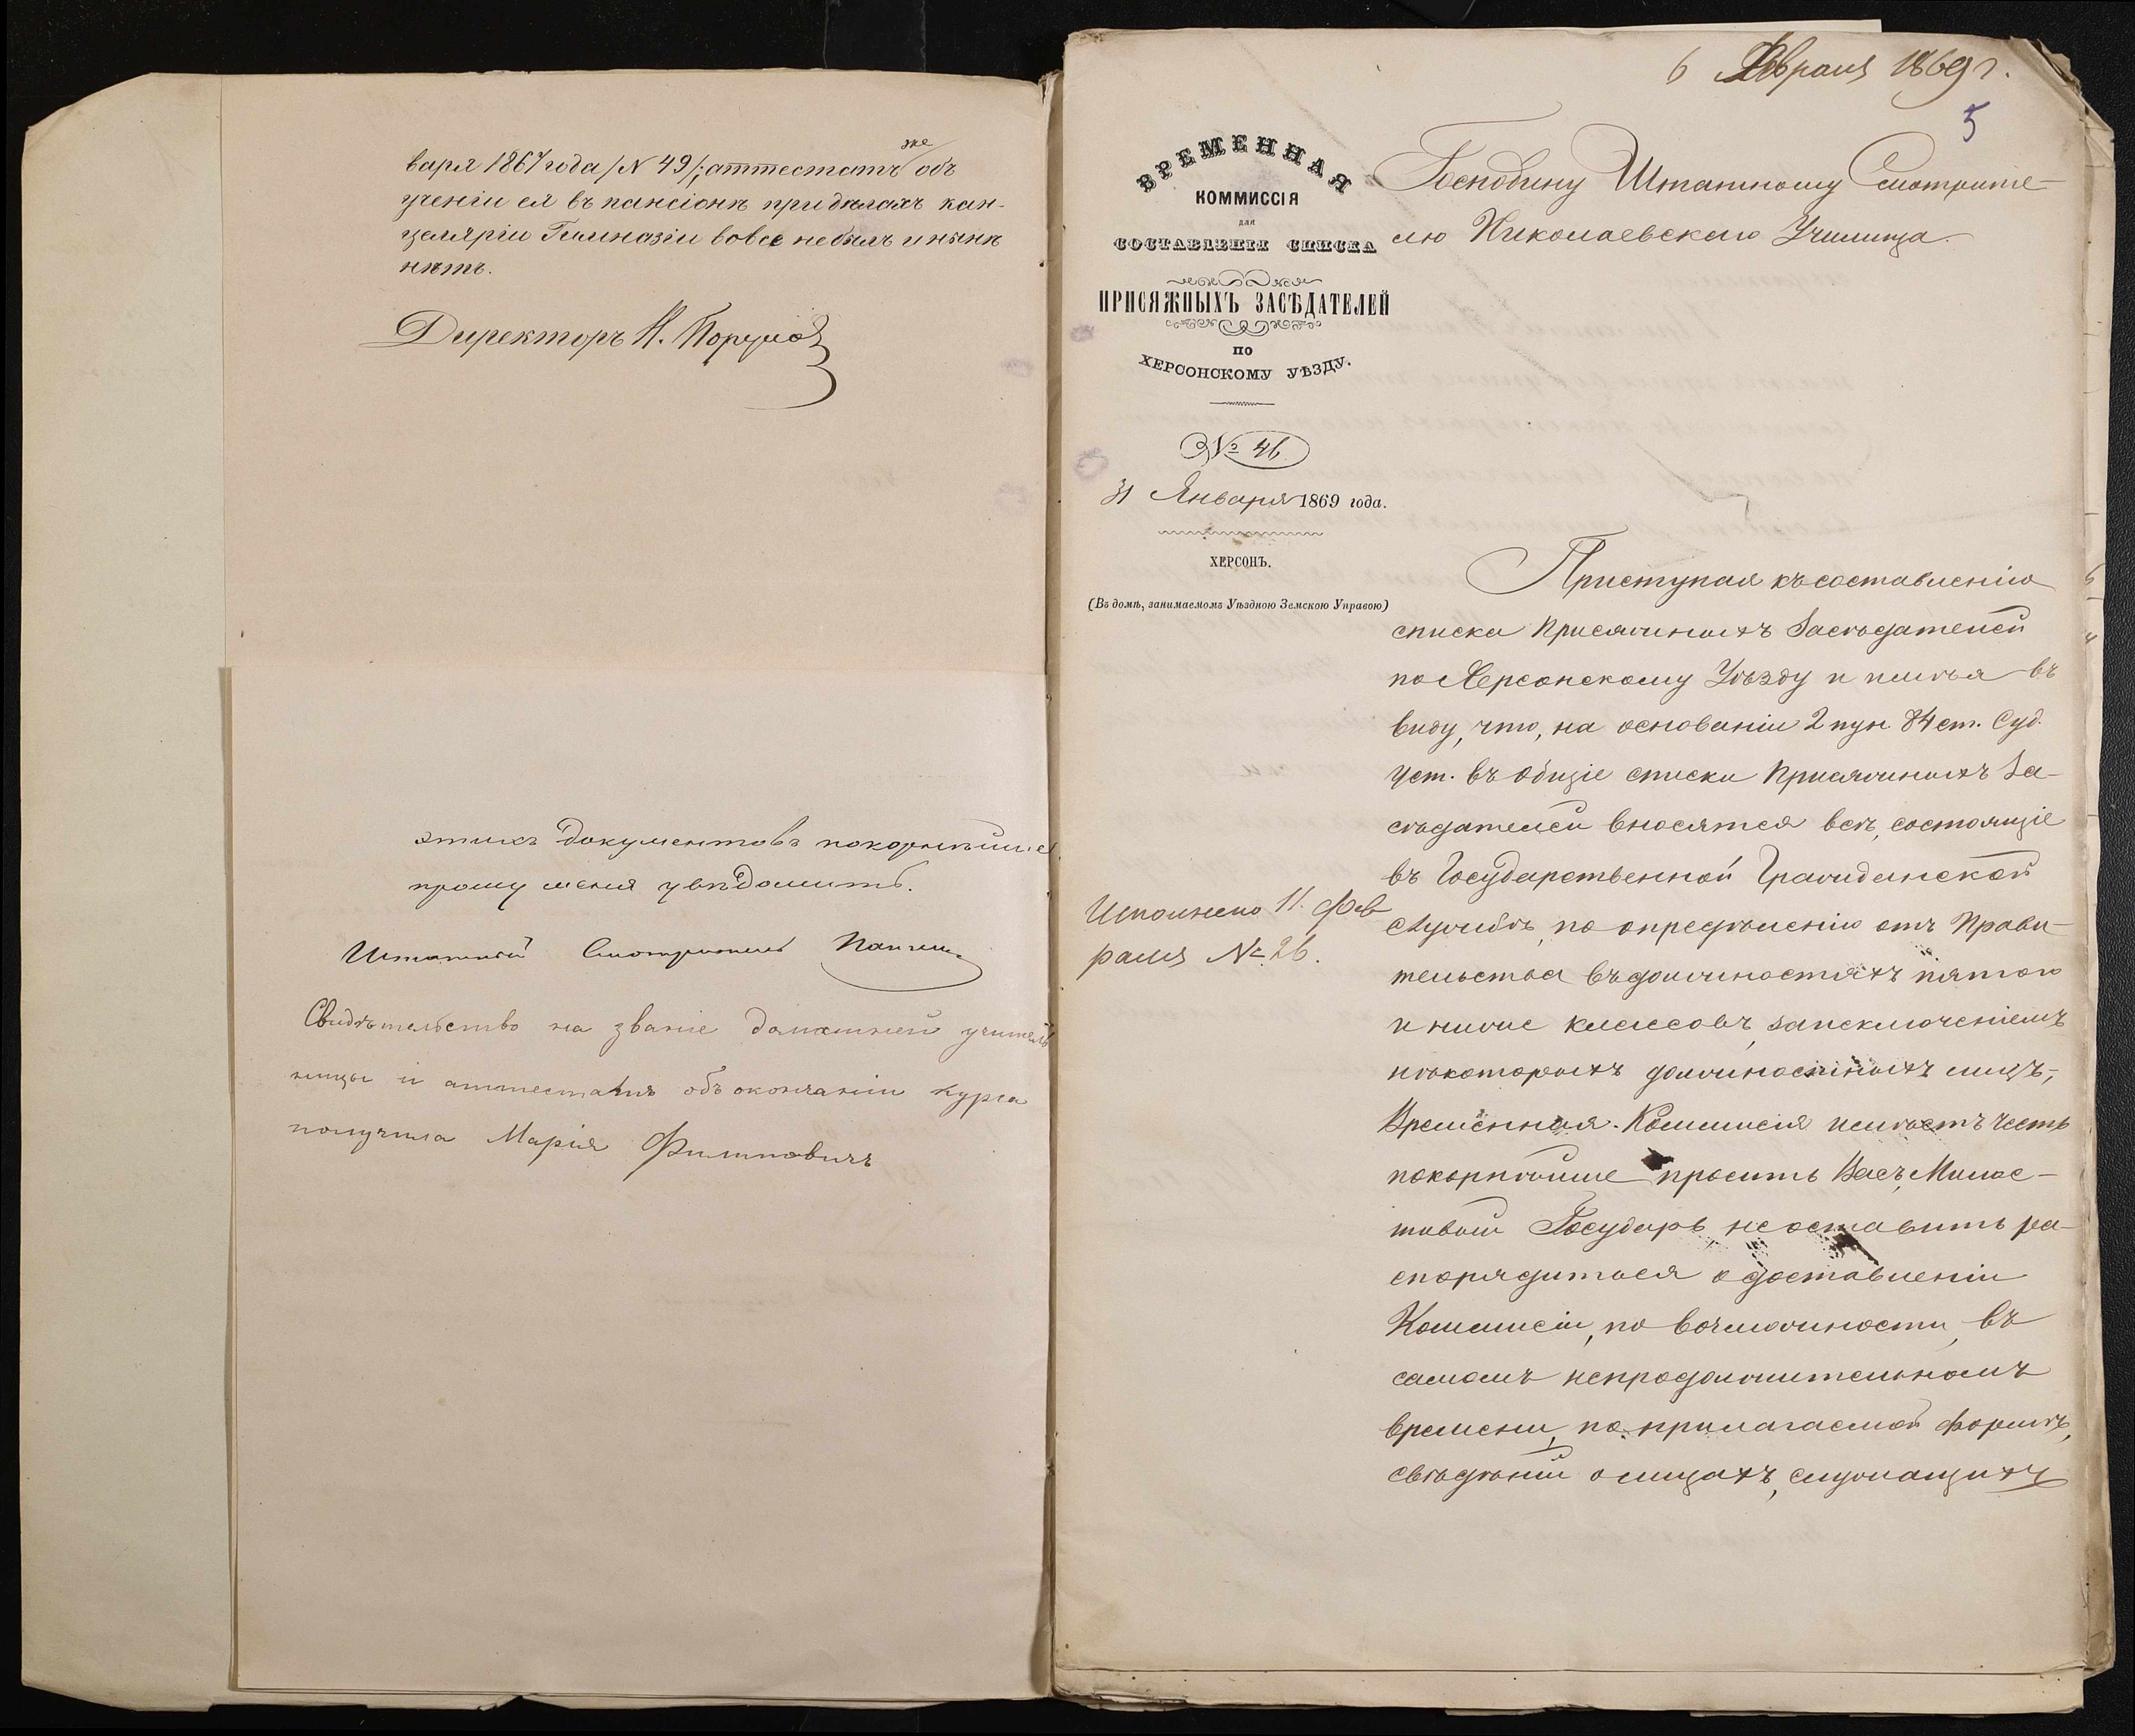 же
варя 1867 года /N 49/; аттестатъ объ
ученіи ея въ пансіонѣ при дѣлахъ кан-
целяріи Гимназіи вовсе небылъ и нынѣ
нѣтъ.
Директоръ Н.
этихъ документовъ покорнѣйше
прошу меня увѣдомить.
Штатный Смотритель
Свидѣтельство на званіе домашней учитель
ницы и аттестатъ объ окончаніи курса
получила Марія Филиповичъ
6 Февраля 1869 г.
5
ВРЕМЕННАЯ
КОММИССІЯ
для
СОСТАВЛЕНІЯ СПИСКА
ПРИСЯЖНЫХЪ ЗАСѢДАТЕЛЕЙ
ПО
ХЕРСОНСКОМУ УѢЗДУ.
№ 46
31 Января 1869 года.
ХЕРСОНЪ.
(Въ домѣ, занимаемомъ Уѣздною Земскою Управою)
Господину Штатному Смотрите-
лю Николаевскаго Училища.
Приступая къ составленію
списка Присяжныхъ Засѣдателей
по Херсонскому Уѣзду и имѣя въ
виду, что, на основаніи 2 пун. 84 ст. Суд.
Уст. въ общіе списки Присяжныхъ За-
сѣдателей вносятся всѣ, состоящіе
въ Государственной Гражданской
Службѣ, по опредѣленію отъ Прави-
тельства въ должностяхъ пятаго
и ниже классовъ, за исключеніемъ
нѣкоторыхъ должностныхъ лицъ,
Временная Коммисія имѣетъ честь
покорнѣйше просить Васъ, Милос-
тивый Государь не оставить ра-
спорядиться о доставленіи
Коммисіи, по возможности, въ
самомъ непродолжительномъ
времени, по прилагаемой формѣ,
свѣдѣній о лицахъ, служащихъ
Исполнено 11. Фев
раля № 26.